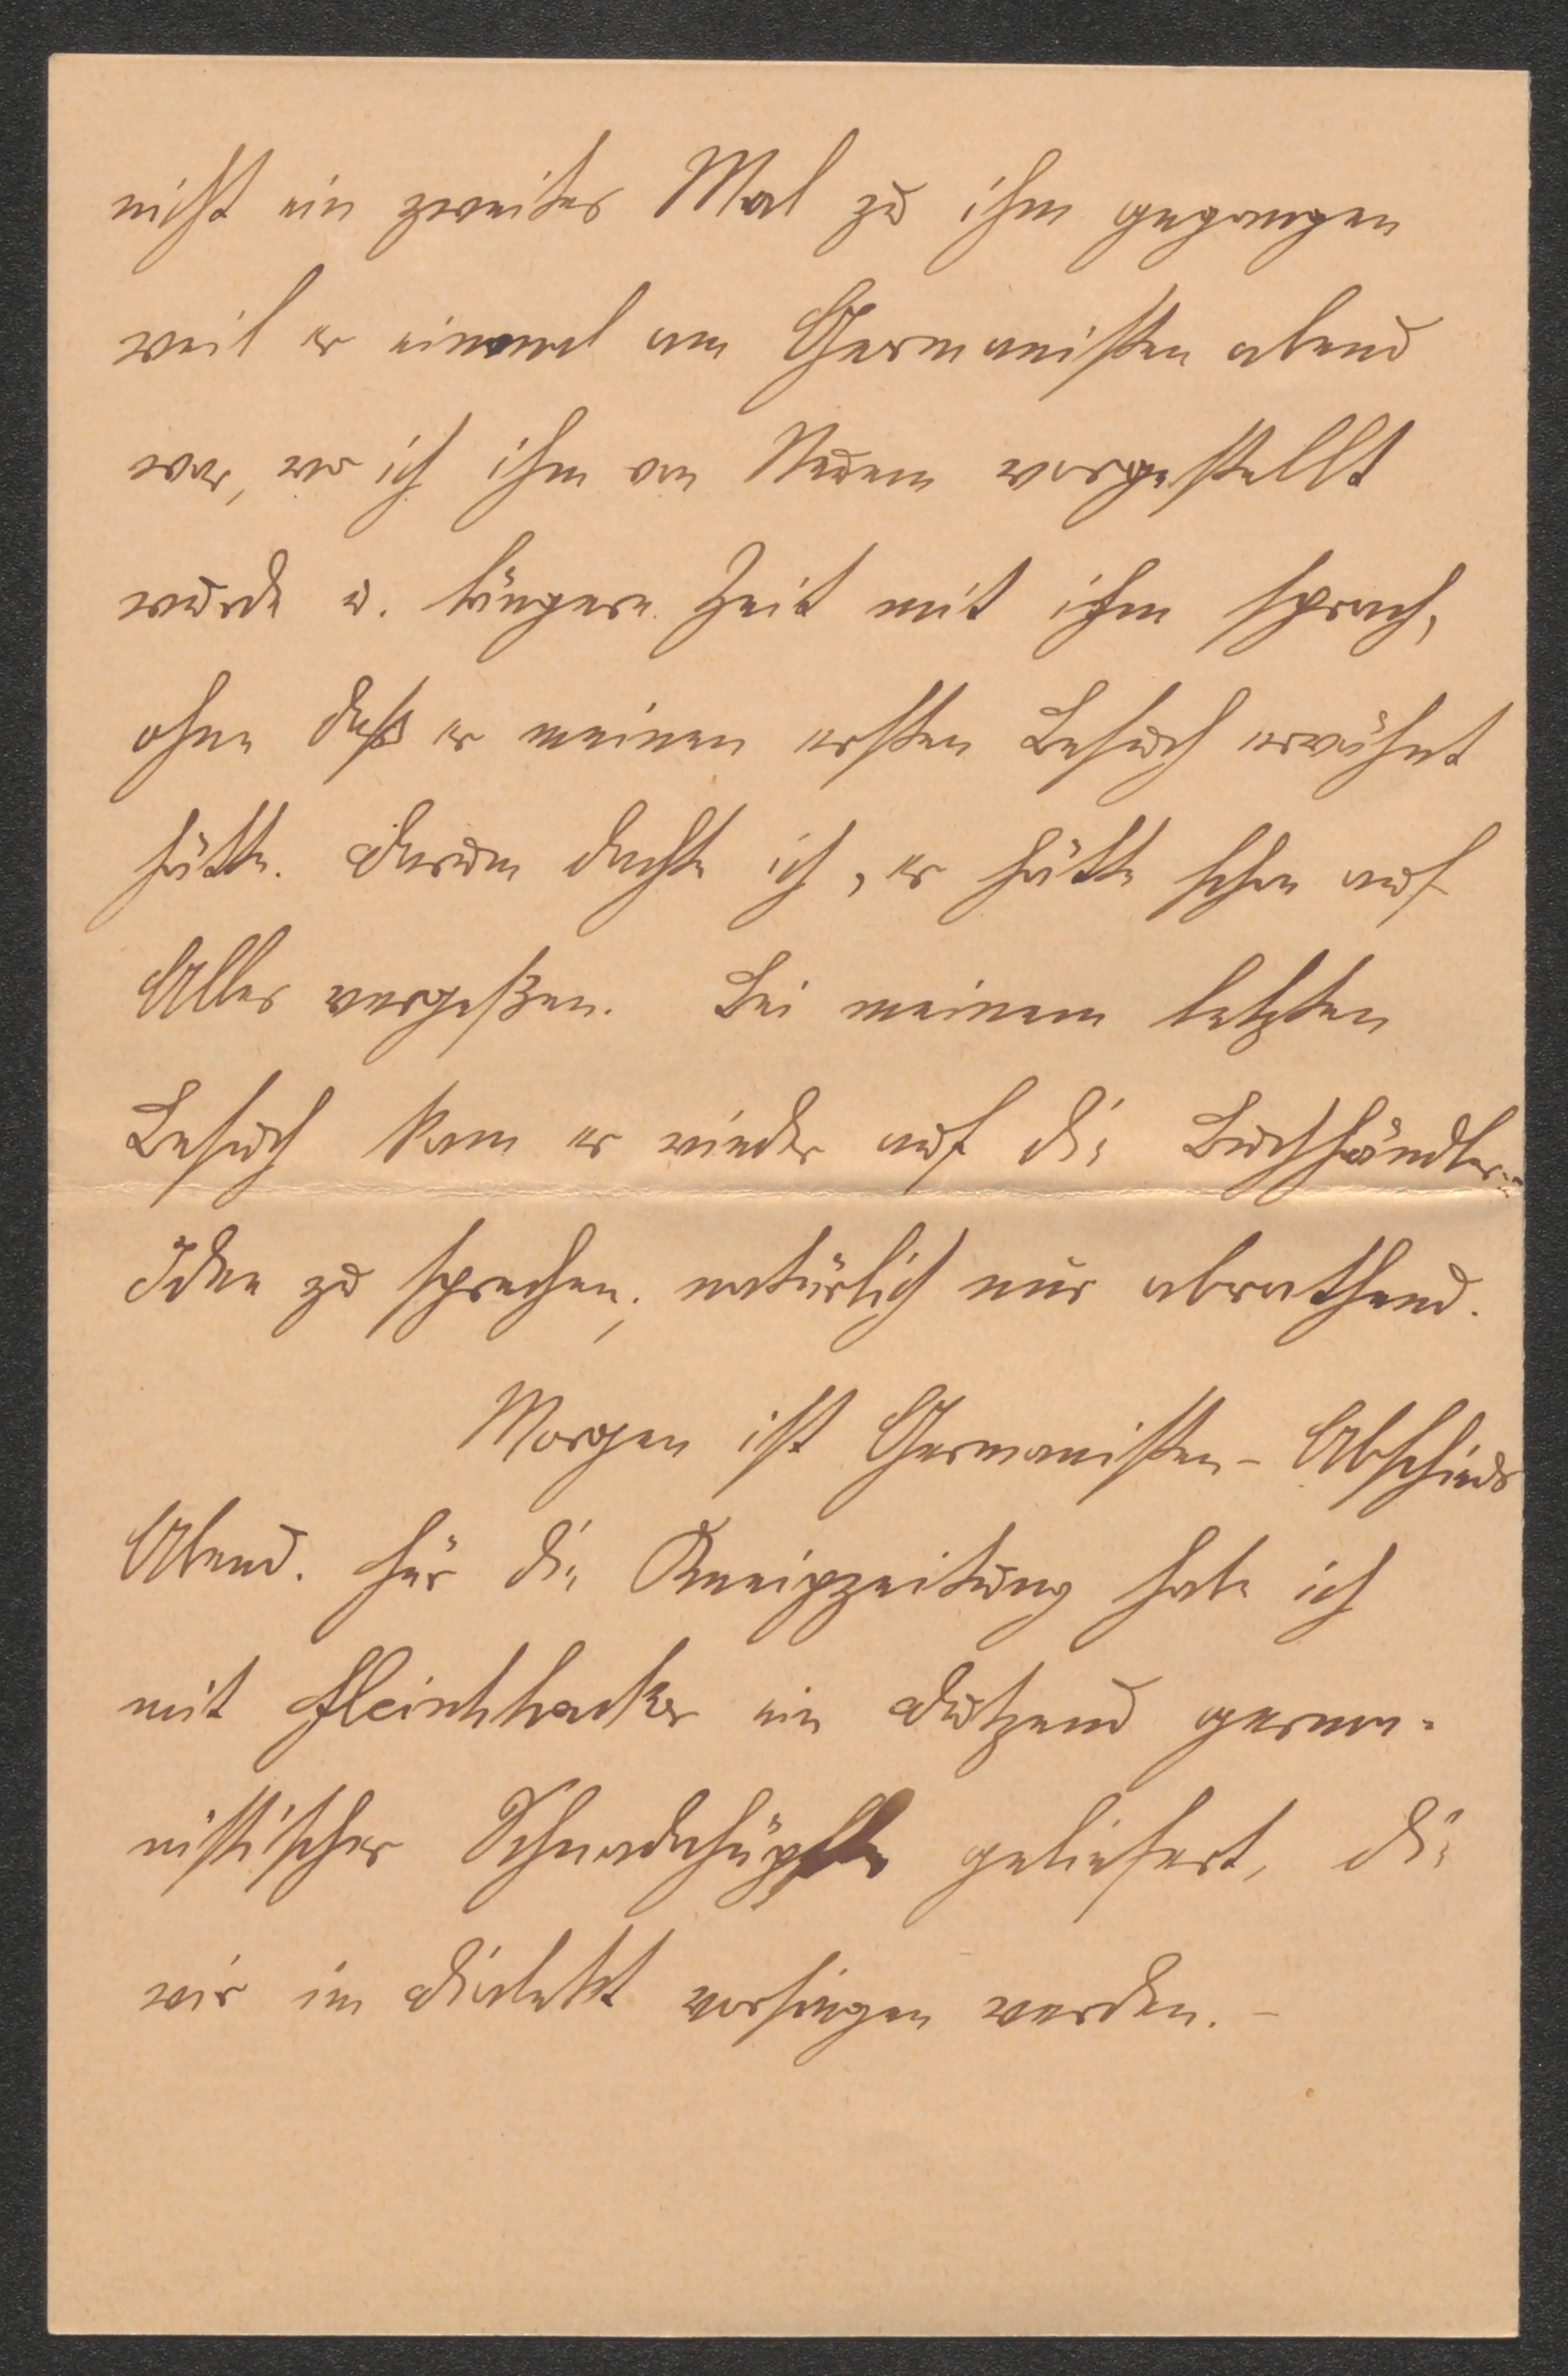 nicht ein zweites Mal zu ihm gegangen
weil er einmal am Germanisten abend
war, wo ich ihm von Neuem vorgestellt
wurde u. längere Zeit mit ihm sprach,
ohne daß er meinen ersten Besuch erwähnt
hätte. Darum dachte ich, er hätte schon auf
Alles vergeßen. Bei meinem letzten
Besuch kam er wieder auf die Buchhändler-
Idee zu sprechen, natürlich nur abrathend.
Morgen ist Germanisten-Abschieds
Abend. Für die Kneipzeitung habe ich
mit Fleischhacker ein Dutzend germa-
nistischer Schnadahüpfln geliefert, die
wir im Dialekt vorsingen werden. -